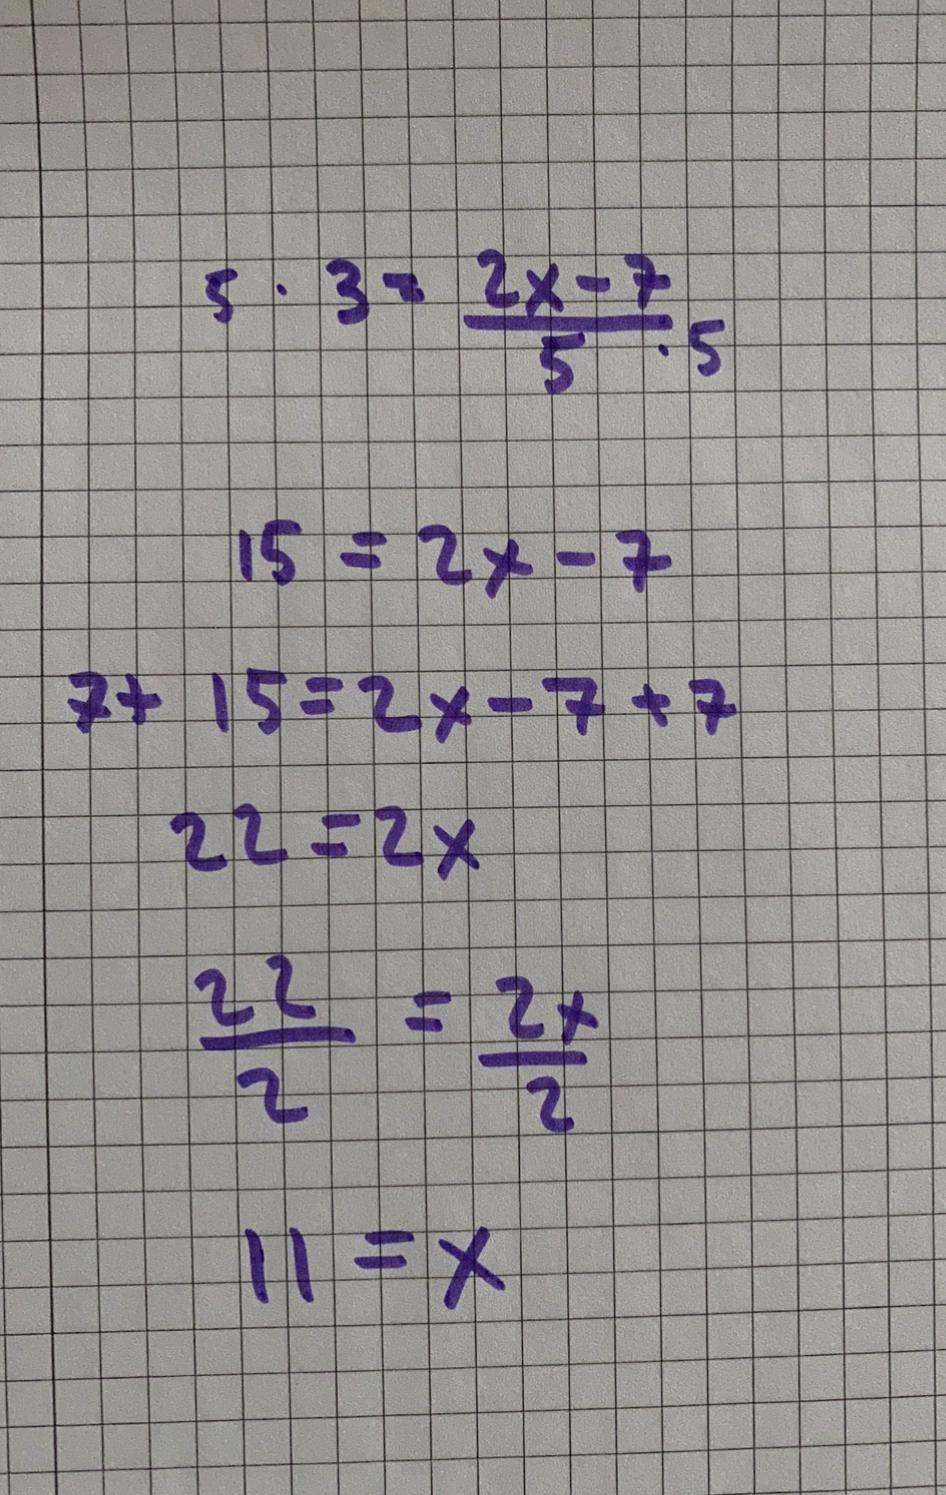 5 · 3 = (2x - 7)/5 · 5
15 = 2x - 7
7 + 15 = 2x - 7 + 7
22 = 2x
22/2 = 2x/2
11 = x